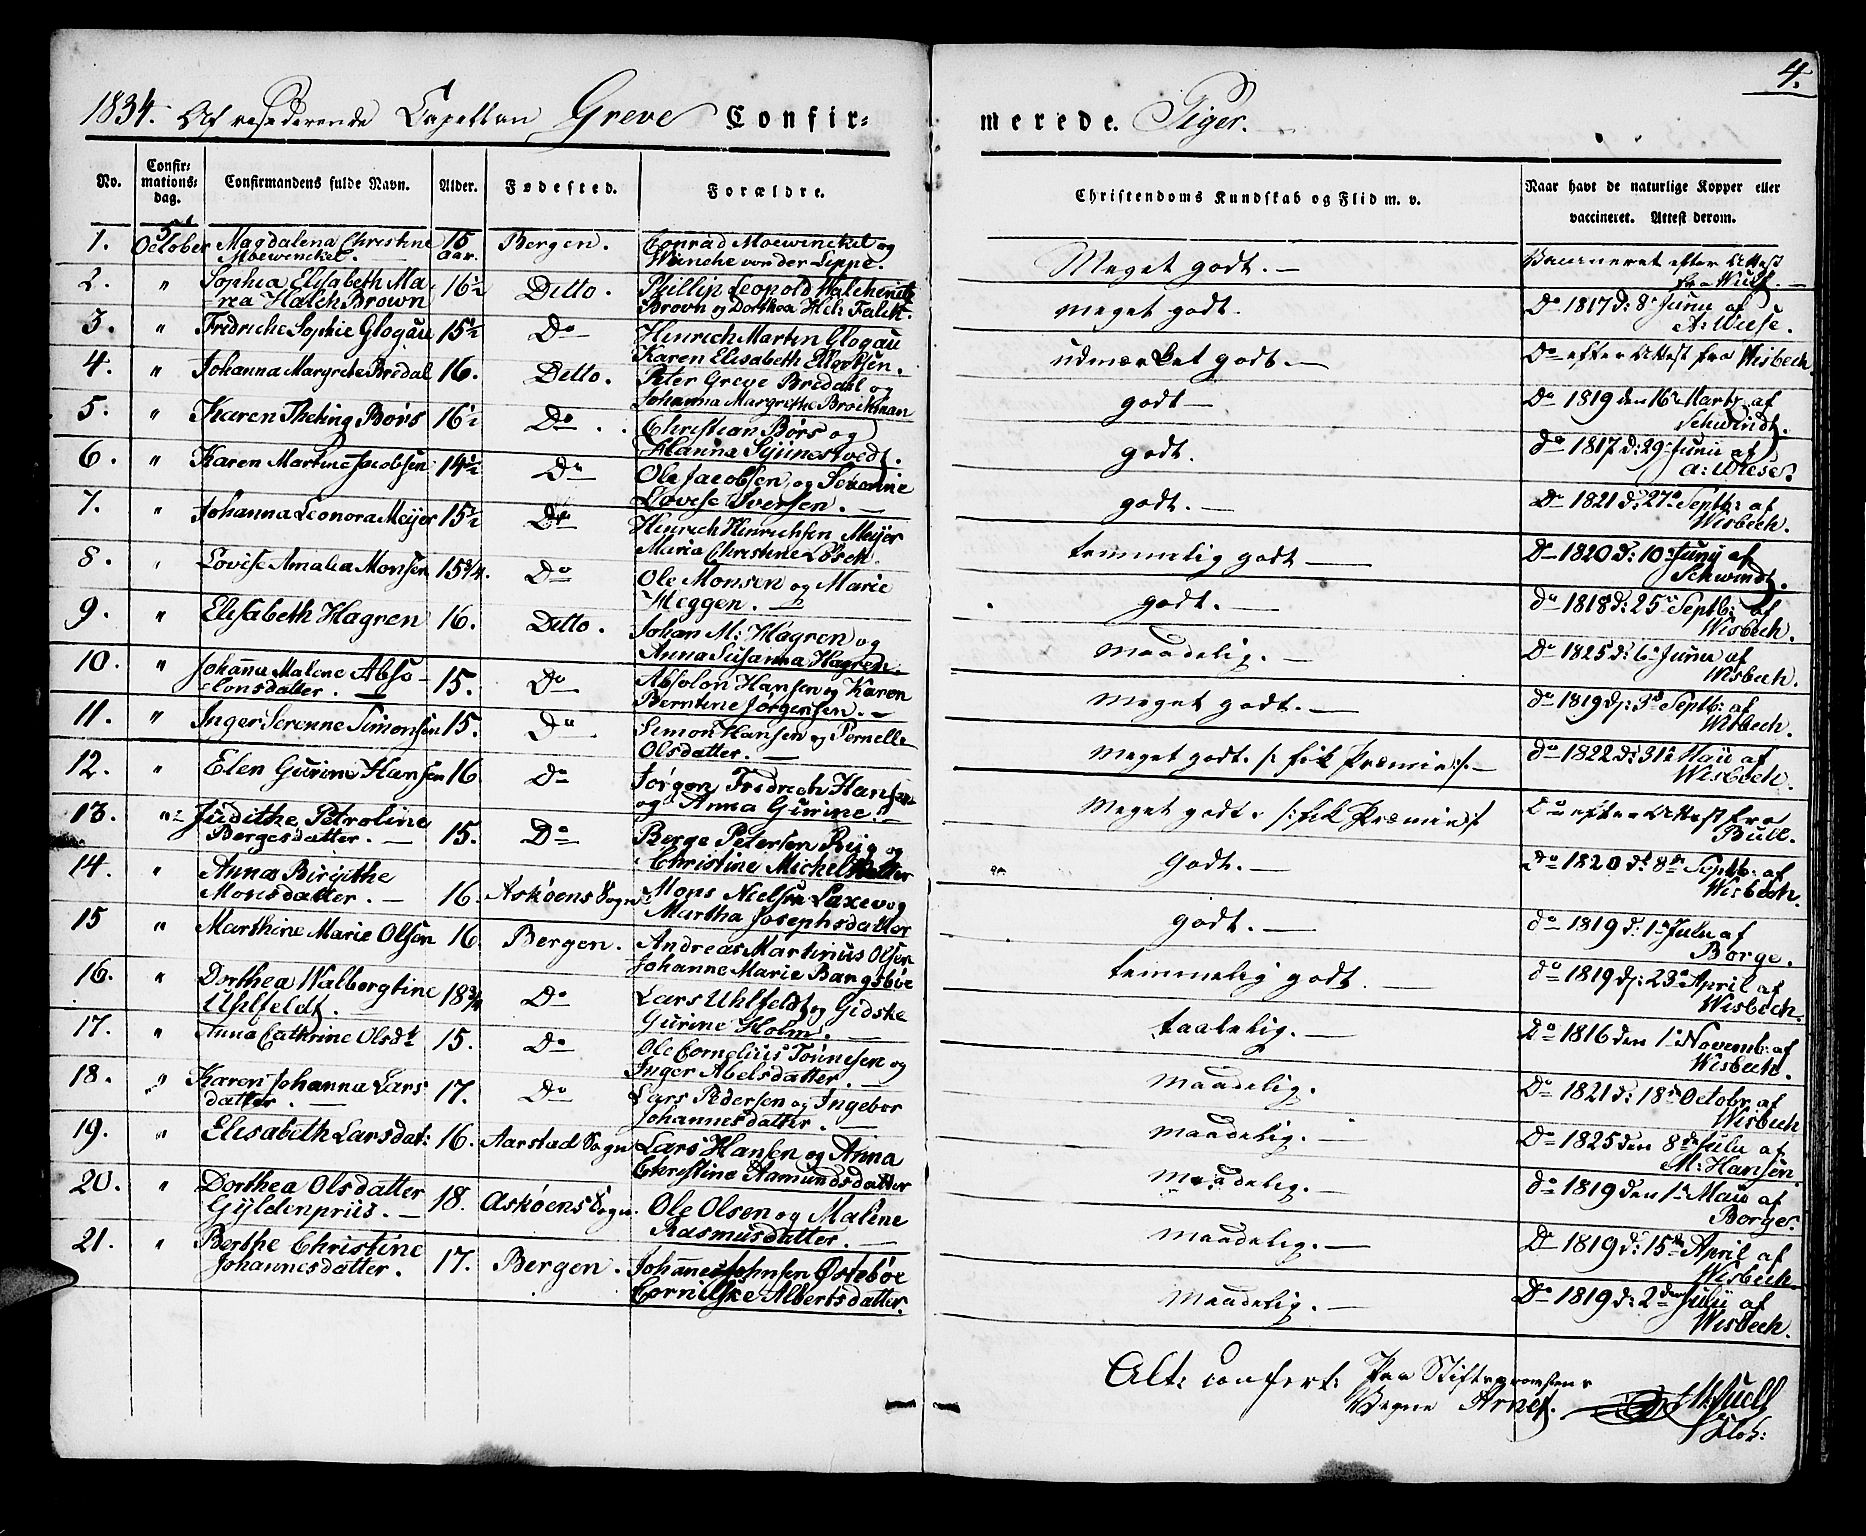 4.
1834. Af residerende Capellan Greve Confir-
merede. Piger.
No.
Confir-
mations-
dag.
Confirmandens fulde Navn.
Alder.
Fødested.
Forældre.
Christendoms Kundskab og Flid m. v.
Naar havt de naturlige Kopper eller
vaccineret. Attest derom.
1. 5t October Magdalena Christine Moewinckel. 15 aar. Bergen. Conrad Moewinckel og Wenche von der Lippe. Meget godt. Vaccineret efter Attest fra Wulf.
2. " Sophia Elisabeth Ma-rea Halch Brown 16½ Ditto. Phillip Leopold Halchenitz Brovn og Dorthea Hel: Falch. meget godt. Do 1817 d: 8 Juny af A: Wiese.
3. " Fredriche Sophie Glogau 15½ Do Hinrich Martin Glogau Karen Elisabeth Ellertsen. udmærket godt. Do efter Attest fra Wisbech.
4. " Johanna Margrete Bredal 16. Ditto. Peter Greve Bredahl og Johanna Margrethe Brockman godt Do 1819 den 16 Marts af Schwindt.
5. " Karen Theting Børs 16½ Do Christian Børs og Hanna Sejunestvedt. godt. do 1817 d: 29 Juny af A: Wiese.
6. " Karen Martine Jacobsen 14½ Do Ole Jacobsen og Severine Lovise Iversen. godt. Do 1821 d: 27 Septb: af Wisbech.
7. " Johanna Leonora Meyer 15½ Do Hinrich Hinrichsen Meyer Maria Christine Løsch. temmelig godt Do 1820 d: 10 Juny af Schwindt.
8. " Lovise Amalia Monsen 15¾. Do Ole Monsen og Marie Meggen. godt. do 1818 d: 25 Septb: af Wisbech.
9. " Elisabeth Hagren 16. Ditto. Johan M: Hagren og Anna Susanna Hagren. maadelig. Do 1825 d: 6 Juny af Wisbech.
10. " Johanna Malene Abso-lonsdatter. 15. Do Absolon Hansen og Karen Berntine Jørgensen. Meget godt. do 1819 d: 3 Septb: af Wisbech.
11. " Inger Serenne Simonsen 15. Do Simon Hansen og Pernelle Olsdatter. Meget godt. /: fik Præmie :/ do 1822 d: 31 Maii af Wisbech.
12. " Elen Gurine Hansen 16 Do Jørgen Fredrich Hansen og Anna Gurine Meget godt. /: fik Præmie :/ Do efter Attest fra Bull.
13. " Judithe Petroline Bergesdatter. 15. Do Berge Petersen Ryg og Christine Micheldatter Godt. Do 1820 d 8 Septb: af Wisbech.
14. " Anna Birgithe Monsdatter. 16. Askøens Sogn Mons Nielsen Laxevog Martha Josephsdatter godt. do 1819 d: 1 July af Borge.
15 " Marthine Marie Olsen 16. Bergen. Andreas Martinus Olsen Johanne Marie Bangsbøe temmelig godt. do 1819 d: 23 April af Wisbech.
16. " Dorthea Walborgtine Uhlfeldt. 18¾ Do Lars Uhlfeldt og Gidske Gurine Holm. taalelig. Do 1816 den 1 Novemb: af Wisbech.
17. " Anna Cathrine Olsdt 15. Do Ole Cornelius Tønnesen og Inger Abelsdatter. maadelig. Do 1821 d: 18 Octobr af Wisbech
18. " Karen Johanna Lars datter. 17. Do Lars Pedersen og Ingebor Johannesdatter. maadelig. Do 1825 den 8de July af M: Hansen.
19. " Elisabeth Larsdat: 16. Aarstad Sogn Lars Hansen og Anna Christina Aamundsdatter maadelig. do 1819 den 1 May af Borge.
20. " Dorthea Olsdatter Gyldenpriis. 18. Askøens Sogn. Ole Olsen og Malene Rasmusdatter. maadelig. Do 1819 d: 15 April af Wisbech.
21. " Berthe Christine Johannesdatter. 17. Bergen. Johannes Johnsen Østebøe Cornilske Albertsdatter. maadelig. Do 1819 d: 2den July af Wisbech.
Att: confert: Paa Stiftsprovstens
Vegne Arnet.